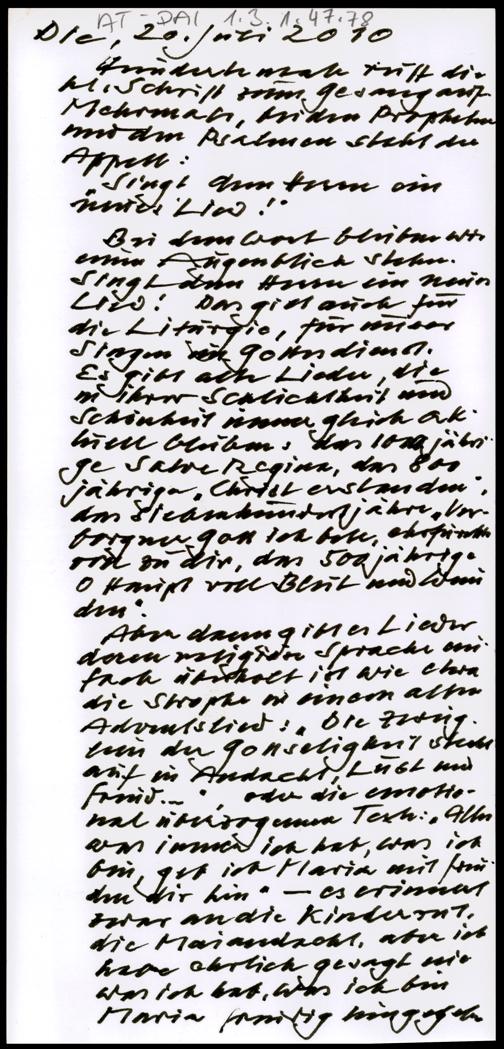 AT-DAI 1.3.1.47.78
Die, 20. Juli 2010
Hundertemale ruft die
hl. Schrift zum Gesang auf.
Mehrmals, bei den Propheten
und in den Psalmen steht der
Appell:
"Singt dem Herrn ein
neues Lied!"
Bei dem Wort bleiben wir
einen Augenblick stehen.
Singt dem Herrn ein neues
Lied! Das gilt auch für
die Liturgie, für unser
Singen im Gottesdienst.
Es gibt alte Lieder, die
in ihrer Schlichtheit und
Schönheit immer gleich ak-
tuell bleiben: das 1000 jähri-
ge Salve Regina, das 800
jährige "Christ erstanden",
das siebenhundertjähre "Ver-
borgner Gott ich bete, ehrfürchtig
zu dir, das 500jährige
O Haupt voll Blut und Wun
den".
Aber dann gibt es Lieder
deren religiöse Sprache ein-
fach überholt ist wie etwa
die Strophe in einem alten
Adventslied: "Die Zweig-
lein der Gottseligkeit steckt
auf in Andacht, Lust und
Freud...", oder die emotio-
nal überzogenen Texte: "Alles
was immer ich hab, was ich
bin, geb ich Maria mit Freu-
den dir hin" – es erinnert
zwar an die Kinderzeit,
die Maiandacht, aber ich
habe ehrlich gesagt nie
was ich hab, was ich bin
Maria freudig hingegeben